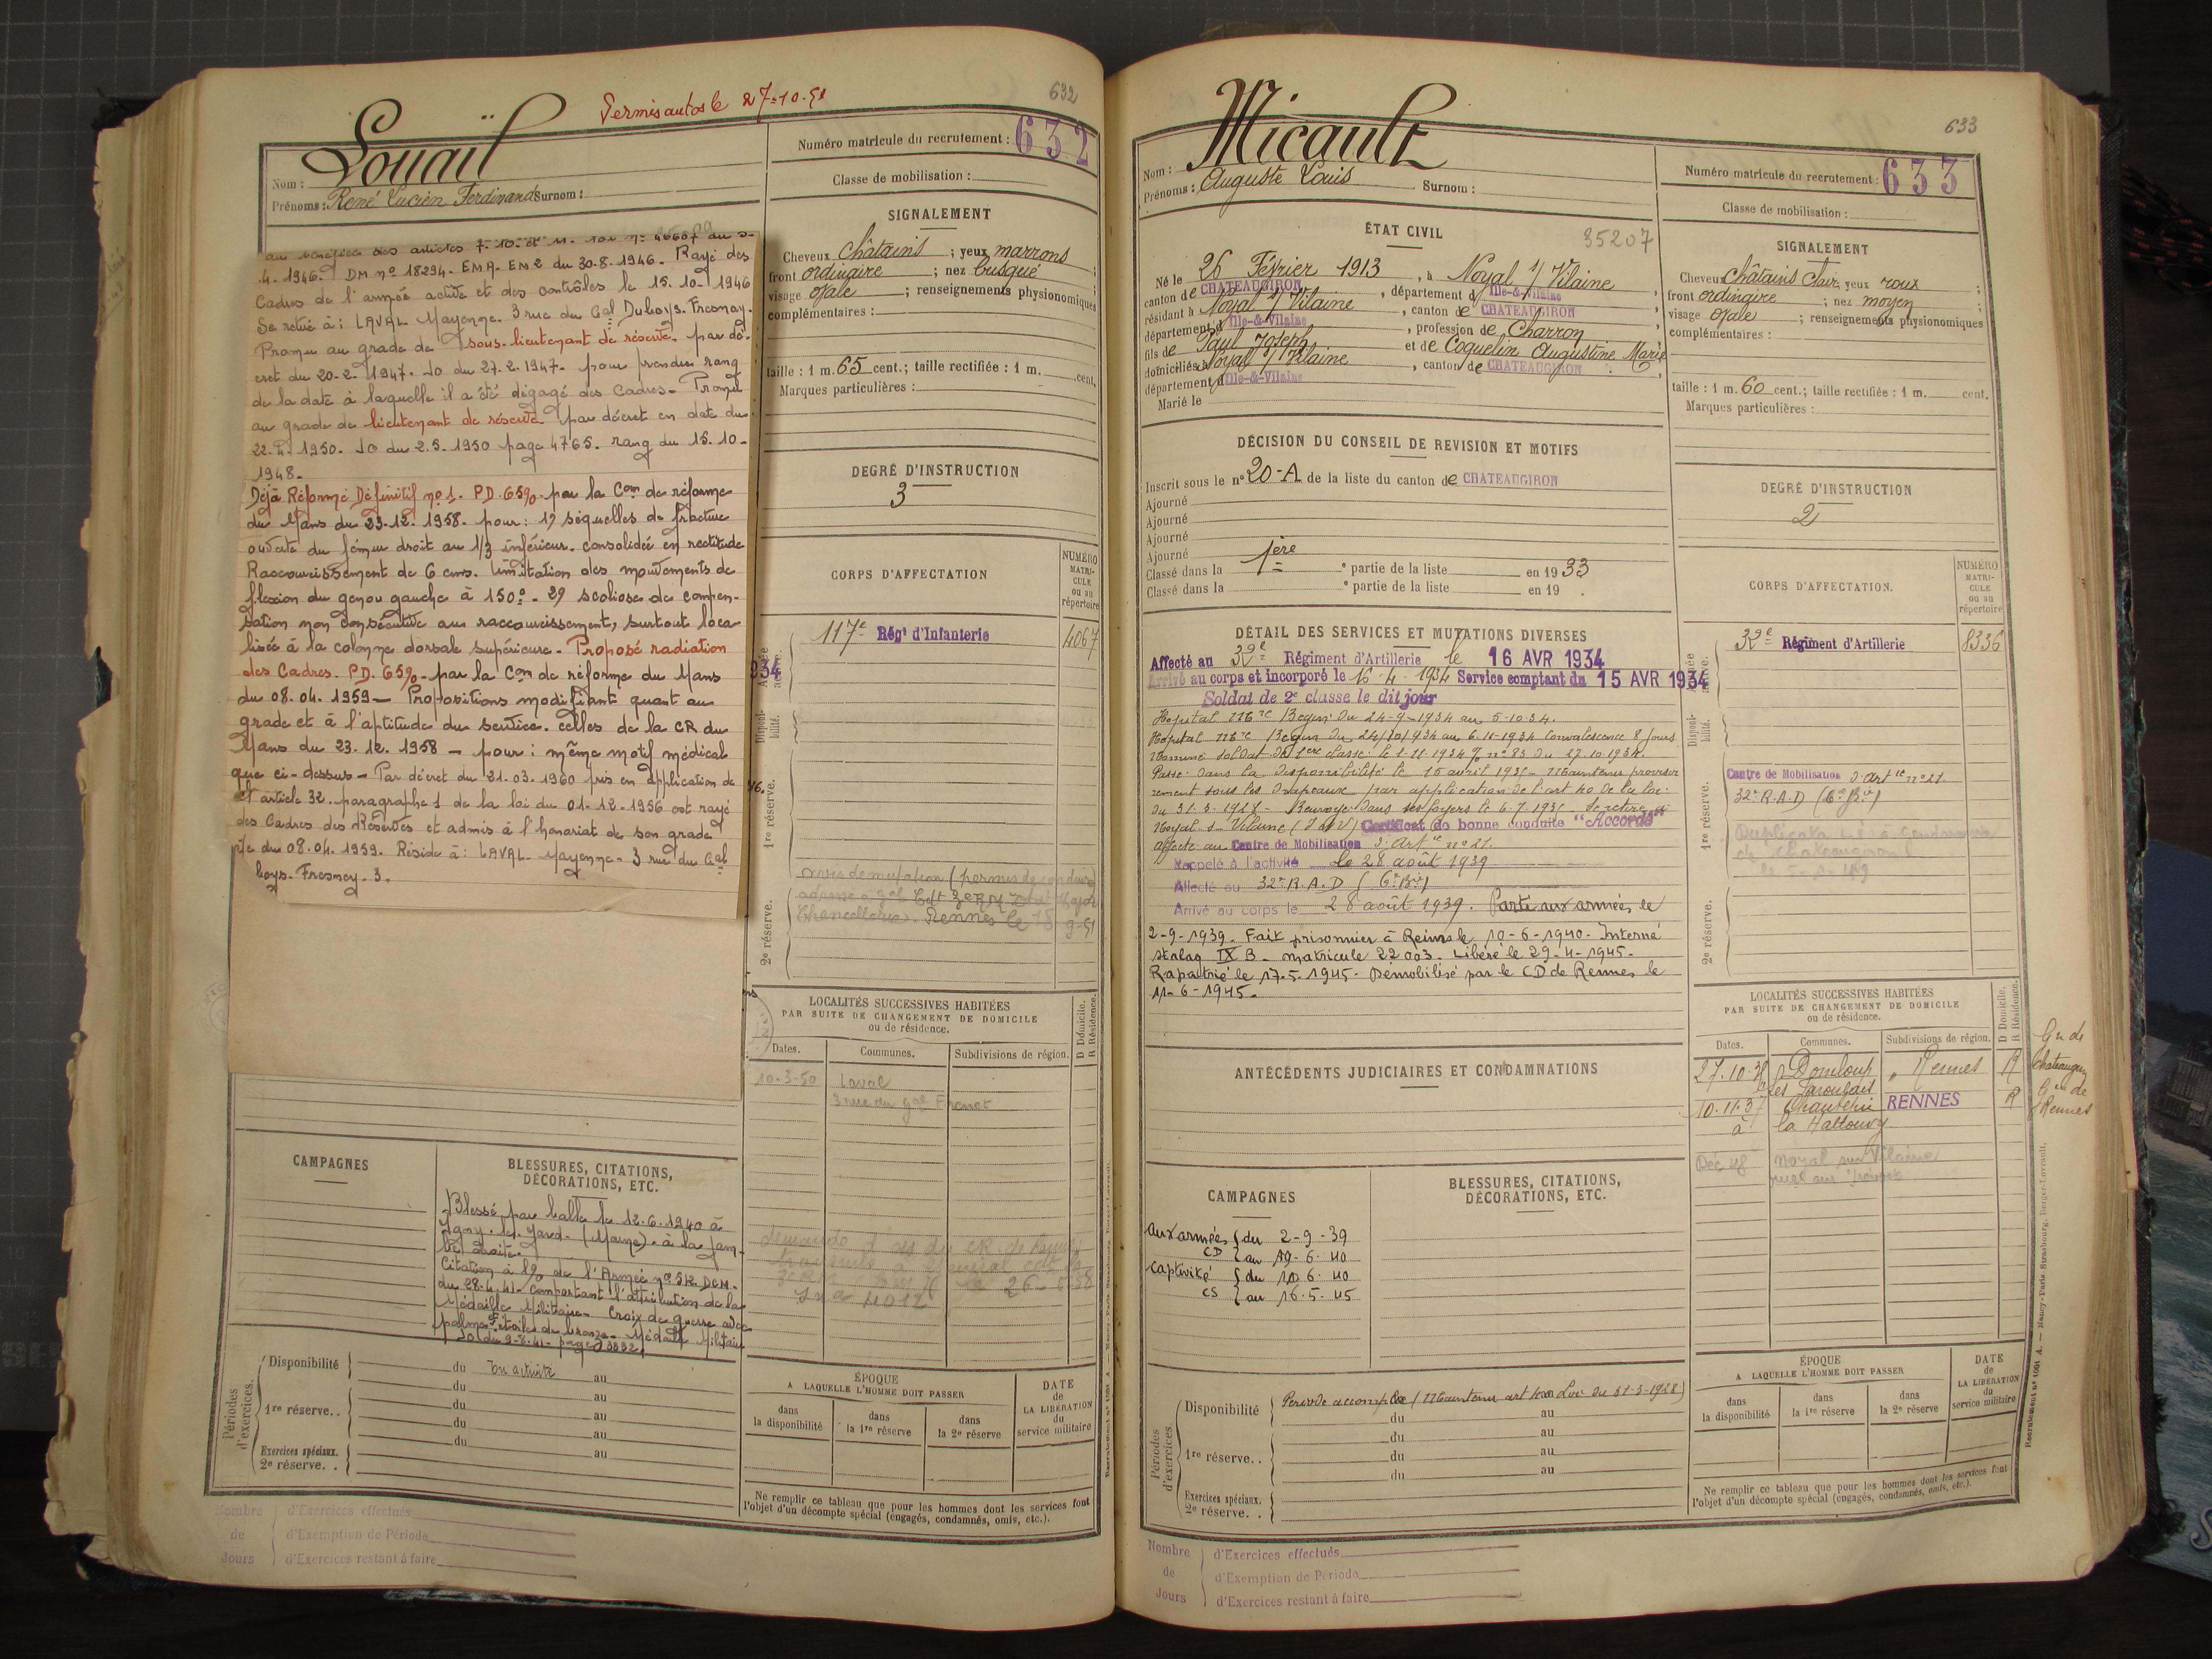 Permis autos le 27-10-51
632
Louaïl
Nom :
Prénoms : René Lucien Ferdinand Surnom :
Numéro matricule du recrutement : 632
Classe de mobilisation :
au bénéfice des articles 7-10-et 11-
4-1946. DM nº 18294. EMA. EM2 du 30.8.1946. Rayé des
Cadres de l'armée active et des contrôles le 15.10.1946
Se retire à : LAVAL. Mayenne. 3 rue du Gal Duboys. Fresney.
Promu au grade de sous-lieutenant de réserve. par dé-
cret du 20-2-1947. JO du 27.2.1947. pour prendre rang
de la date à laquelle il a été dégagé des Cadres - Promu
au grade de lieutenant de réserve par décret en date du
22.4.1950. JO du 2.5.1950 page 4765. rang du 15.10-
1948.
Déjà Réformé Définitif nº 1. PD. 65% par la Com de réforme
du Mans du 23.12.1958. pour : 1) séquelles de fracture
ouverte du fémur droit au 1/3 inférieur. consolidée en rectitude
Raccourcissement de 6 cms. limitation des mouvements de
flexion du genou gauche à 150º - 2) scoliose de compen-
sation non consécutive au raccourcissement, surtout loca-
lisée à la colonne dorsale supérieure. Proposé radiation
des Cadres. PD. 65% - par la Com de réforme du Mans
du 08.04.1959 - Propositions modifiant quant au
grade et à l'aptitude du service. celles de la CR du
Mans du 23.12.1958 - pour : même motif médical
que ci-dessus - Par décret du 21.03.1960 pris en application de
et article 32. paragraphe 1 de la loi du 01-12-1956 est rayé
des Cadres des Réserves et admis à l'honorariat de son grade
du 08.04.1959. Réside à : LAVAL. Mayenne - 3 rue du Gal
boys. Fresney. 3.
SIGNALEMENT
Cheveux châtains ; yeux marrons ;
front ordinaire ; nez busqué ;
visage ovale ; renseignements physionomiques
complémentaires :
taille : 1 m. 65 cent.; taille rectifiée : 1 m. cent.
Marques particulières :
DEGRÉ D'INSTRUCTION
3
CORPS D'AFFECTATION
NUMÉRO MATRI-CULE ou au répertoire
117e Régt d'Infanterie 4067
934
Armée active.
Disponi-bilité.
1re réserve.
2e réserve.
avis de mutation (permis de conduire)
Chancellerie. Rennes le 18 9-51
LOCALITÉS SUCCESSIVES HABITÉES
PAR SUITE DE CHANGEMENT DE DOMICILE
ou de résidence.
Dates. Communes. Subdivisions de région. D Domicile. R Résidence.
10-3-50 Laval
3 rue du gal Fresnet
CAMPAGNES
BLESSURES, CITATIONS,
DÉCORATIONS, ETC.
Blessé par balle le 12.6.1940 à
Igny. le. Jard. (Marne). à la jam-
be droite.
Citation à l'O/ de l'Armée nº SK. DCM.
du 28.4.41 - Comportant l'attribution de la
Médaille Militaire - Croix de guerre avec
palme et étoiles de bronze - Médaille Militaire
26-5-58
Périodes d'exercices.
Disponibilité du en activité au
du au
1re réserve.. du au
du au
Exercices spéciaux. du au
2e réserve. .
ÉPOQUE
A LAQUELLE L'HOMME DOIT PASSER
dans la disponibilité dans la 1re réserve dans la 2e réserve
DATE de LA LIBÉRATION du service militaire
Ne remplir ce tableau que pour les hommes dont les services font
l'objet d'un décompte spécial (engagés, condamnés, omis, etc.).
Nombre de Jours
d'Exercices effectués
d'Exemption de Période
d'Exercices restant à faire
633
Micault
Nom :
Prénoms : Auguste Louis Surnom :
Numéro matricule du recrutement : 633
Classe de mobilisation :
ÉTAT CIVIL
35207
Né le 26 Février 1913, à Noyal s/ Vilaine
canton de CHATEAUGIRON, département d'Ille-&-Vilaine,
résidant à Noyal s/ Vilaine, canton de CHATEAUGIRON
département d'Ille-&-Vilaine, profession de Charron
fils de Paul Joseph et de Coquelin Augustine Marie
domiciliés Noyal s/ Vilaine, canton de CHATEAUGIRON,
département d'Ille-&-Vilaine
Marié le
SIGNALEMENT
Cheveux châtains clair, yeux roux ;
front ordinaire ; nez moyen ;
visage ovale ; renseignements physionomiques
complémentaires :
taille : 1 m. 60 cent.; taille rectifiée : 1 m. cent.
Marques particulières :
DÉCISION DU CONSEIL DE REVISION ET MOTIFS
Inscrit sous le nº 20-A de la liste du canton de CHATEAUGIRON
Ajourné
Ajourné
Ajourné
Ajourné
Classé dans la 1ère e partie de la liste en 1933
Classé dans la e partie de la liste en 19 .
DEGRÉ D'INSTRUCTION
2
CORPS D'AFFECTATION.
NUMÉRO MATRI-CULE ou au répertoire
32e Régiment d'Artillerie 8336
Centre de Mobilisation d'Artie nº 21.
32e R.A.D (6e Bie)
DÉTAIL DES SERVICES ET MUTATIONS DIVERSES
Affecté au 32e Régiment d'Artillerie le 16 AVR 1934
Arrivé au corps et incorporé le 16.4.1934 Service comptant du 15 AVR 1934
Soldat de 2e classe le dit jour
Hopital Mre Begin du 24-9-1934 au 5-10-34.
Hopital Mre Begin du 24/10/934 au 6-11-1934 Convalescence 8 jours
Nommé soldat de 1ere classe le 1-11-1934 nº 83 du 27.10.1934.
Passé dans la disponibilité le 15 avril 1935 - Maintenu provisoi-
rement sous les drapeaux par application de l'art 40 de la loi
du 31-3-1928 - Renvoyé dans ses foyers le 6-7-1935 Se retire à
Noyal-s-Vilaine (I & V) Certificat de bonne conduite "Accordé"
affecté au Centre de Mobilisation d'Artie nº 21.
Rappelé à l'activité le 28 août 1939
Affecté au 32e R.A.D (6e Bie)
Arrivé au corps le 28 août 1939. Parti aux armées le
2-9-1939. Fait prisonnier à Reims le 10-6-1940. Interné
stalag IX B - matricule 22003. Libéré le 29-4-1945.
Rapatrié le 17.5.1945. Démobilisé par le CD de Rennes le
11-6-1945.
Armée active.
Disponi-bilité.
1re réserve.
2e réserve.
LOCALITÉS SUCCESSIVES HABITÉES
PAR SUITE DE CHANGEMENT DE DOMICILE
ou de résidence.
Dates. Communes. Subdivisions de région. D Domicile. R Résidence.
Domloup Rennes R
10.11.37 Chantepie RENNES R
à la Hallouvry
Déc 48 Noyal sur Vilaine
Gie de
Rennes
ANTÉCÉDENTS JUDICIAIRES ET CONDAMNATIONS
CAMPAGNES
aux armées du 2-9-39
CD au 19-6-40
captivité du 10-6-40
CS au 16.5.45
BLESSURES, CITATIONS,
DÉCORATIONS, ETC.
Périodes d'exercices
Disponibilité Période accomplie (Maintenu art 40 Loi du 31-3-1928)
du au
du au
1re réserve.. du au
du au
Exercices spéciaux.
2e réserve. .
ÉPOQUE
A LAQUELLE L'HOMME DOIT PASSER
dans la disponibilité dans la 1re réserve dans la 2e réserve
DATE de LA LIBÉRATION du service militaire
Ne remplir ce tableau que pour les hommes dont les services font
l'objet d'un décompte spécial (engagés, condamnés, omis, etc.).
Nombre de Jours
d'Exercices effectués
d'Exemption de Période
d'Exercices restant à faire